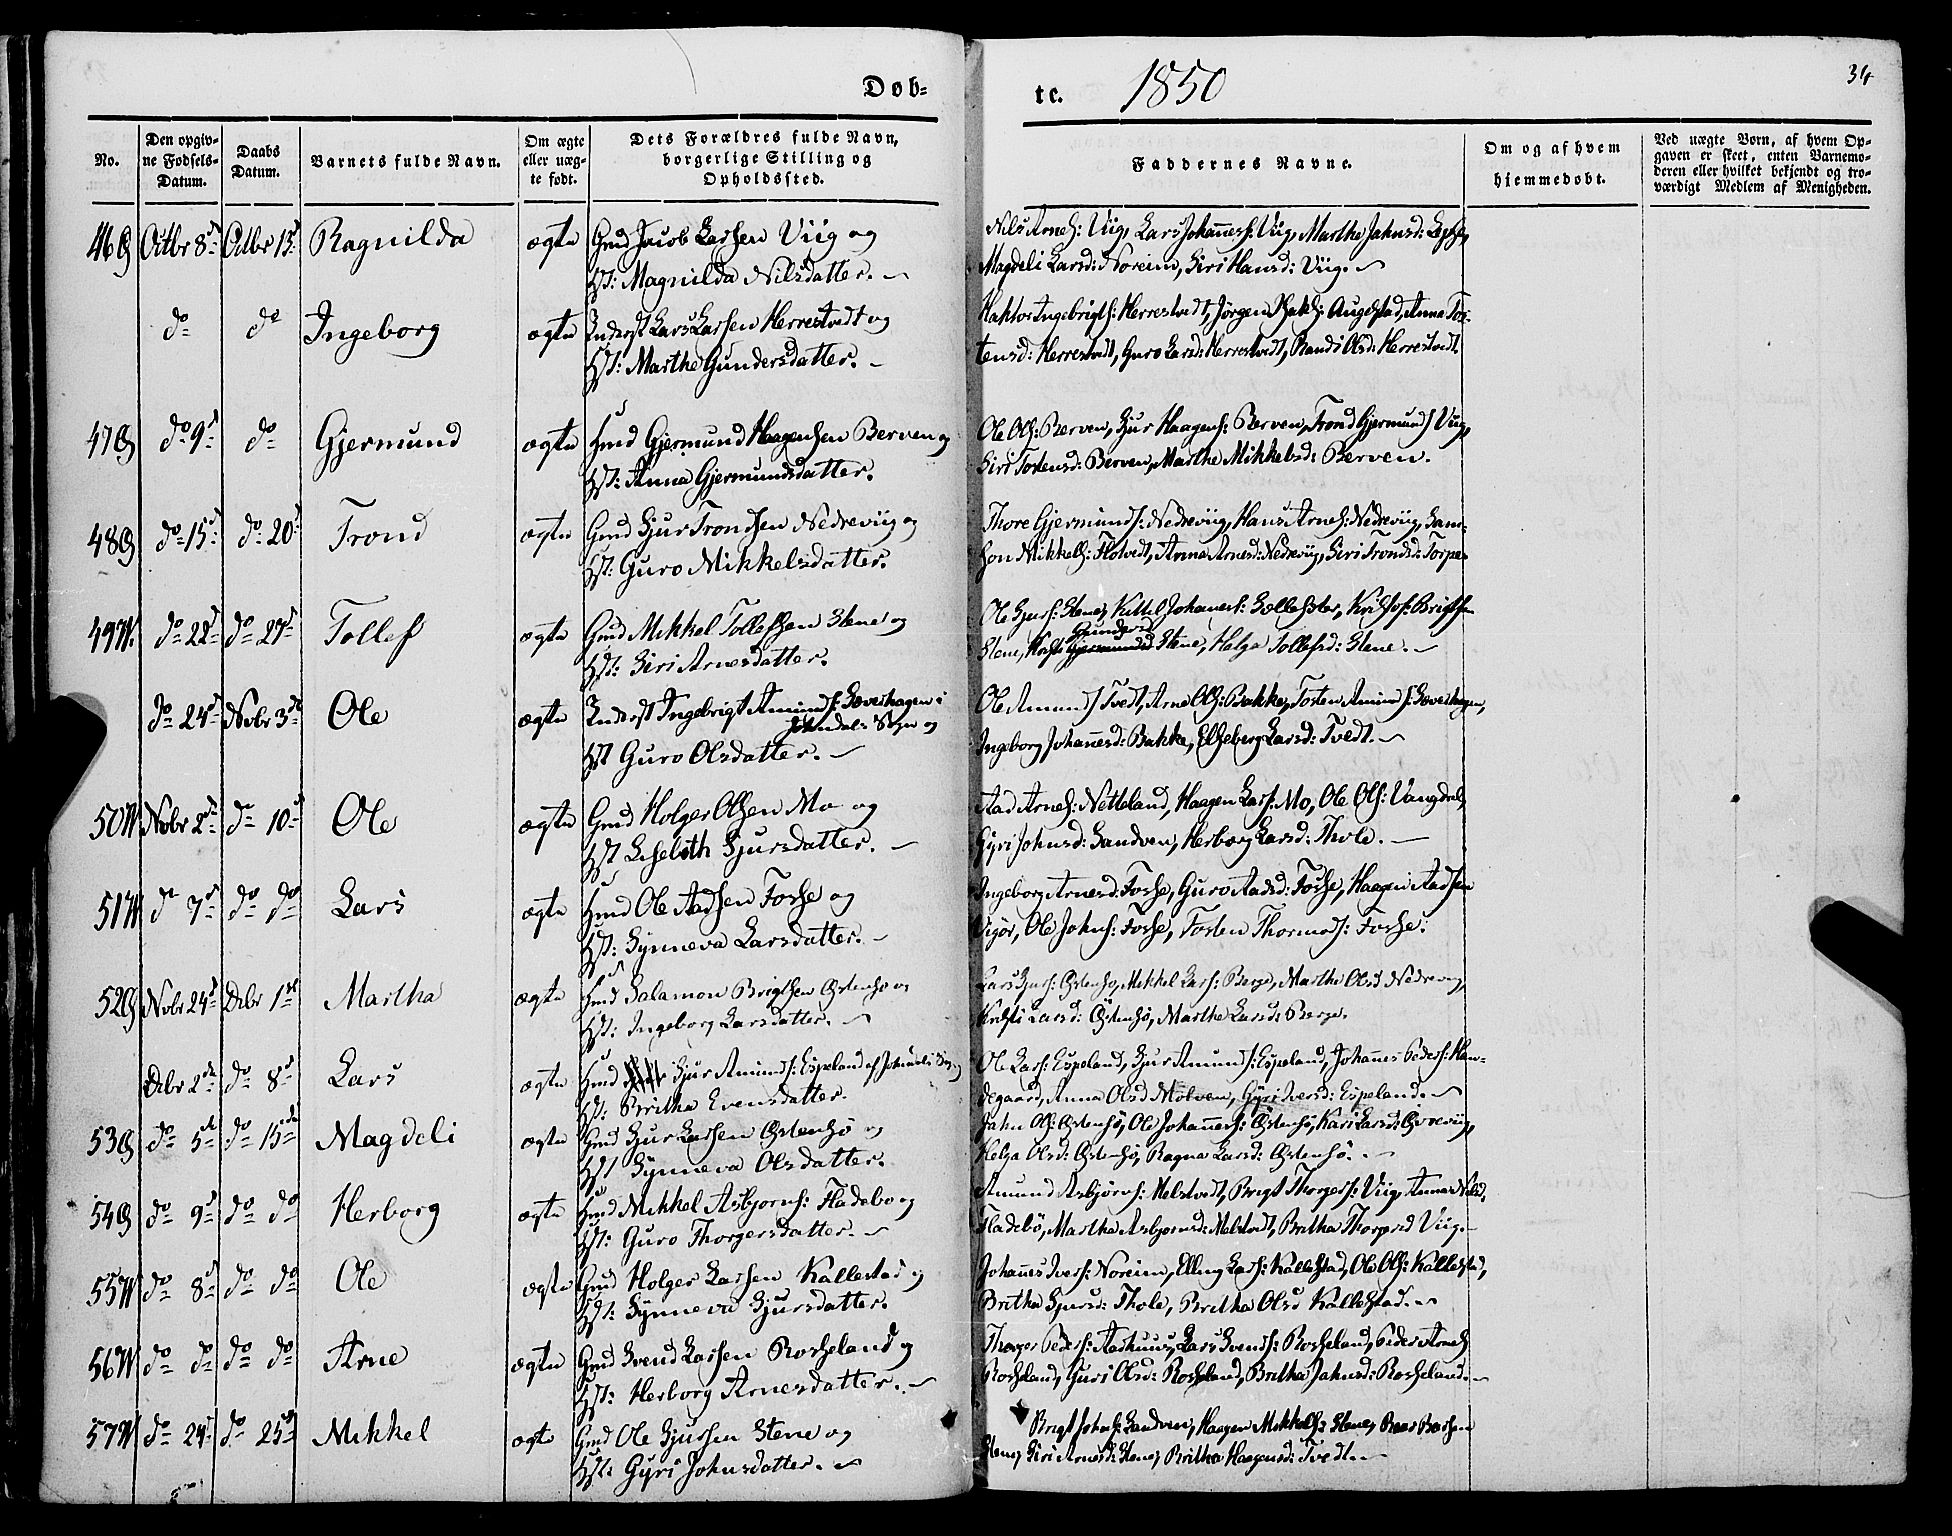 Døb=
te. 1850
34
No.
Den opgiv-
ne Fødsels-
Datum.
Daabs
Datum.
Barnets fulde Navn.
Om ægte
eller uæg-
te født.
Dets Forældres fulde Navn,
borgerlige Stilling og
Opholdssted.
Faddernes Navne.
Om og af hvem
hjemmedøbt.
Ved uægte Børn, af hvem Op-
gaven er skeet, enten Barnemo-
deren eller hvilket bekjendt og tro-
værdigt Medlem af Menigheden.
46 Octbr 8 Octbr 13 Ragnilda ægte Gmd Jacob Larsen Viig og
Hst: Magnilda Nilsdatter.
Nils Arnes: Viig, Lars Johannes: Viig, Marthe Jahnsd:
Magdeli Larsd: Noreim, Siri Hansd: Viig.
do do Ingeborg ægte Inderst Lars Larsen Herrestvedt og
Hst: Marthe Gundersdatter.
Haktor Ingebrigts: Herrestvedt, Jørgen Augestad, Anna Tor-
tensd: Herrestvedt, Guro Larsd: Herrestvedt, Randi Olsd: Herrestvedt.
47 do 9 do Gjermund ægte Hmd Gjermund Haagensen Berven og
Hst: Anna Gjermundsdatter.
Ole Ols: Berven, Sjur Haagens: Berven, Trond Gjermunds Viig,
Siri Torstensd: Berven, Marthe Mikkelsd: Berven.
48 do 15 do 20 Trond ægte Gmd Sjur Trondsen Nedreviig og
Hst: Guro Mikkelsdatter.
Thore Gjermunds: Nedreviig, Hans Arnes: Nedreviig, Sam-
son Mikkels: Flotvedt, Anna Arnesd: Nedreviig, Siri Trondsd: Torpe
49 do 22 do 27 Tollef ægte Gmd Mikkel Tollefsen Stene og
Hst: Siri Arnesdatter.
Ole Sjurs: Stene, Kittel Johannes: Kristof: Brigtsen
Stene, Gundersd Stene, Helga Tollefsd: Stene.
do 24 Novbr 3 Ole ægte Inderst Ingebrigt Amunds: i
Jondals Sogn og
Hst Guro Olsdatter.
Ole Amunds Tvedt, Arne Ols: Bakke, Torsten Amunds:
Ingeborg Johannesd: Bakke, Elseberg Larsd: Tvedt.
50 Novbr 2 do 10 Ole ægte Gmd Holger Olsen Mo og
Hst Liselbth Sjursdatter.
Aad Arnes: Netteland, Haagen Lars: Mo, Ole Ols: Vangdal,
Gyri Johnsd: Sandven, Herborg Larsd: Thole.
51 do 7 do do Lars ægte Hmd Ole Aadsen Fosse og
Hst: Synneva Larsdatter.
Ingeborg Arnesd: Fosse, Guro Aadsd: Fosse, Haagen Aadsen
Vigør, Ole Johns: Fosse, Torsten Thormods: Fosse.
52 Novbr 24 Debr 1 Martha ægte Hmd Salamon Brigtsen Østensø og
Hst: Ingeborg Larsdatter.
Lars Sjurs: Østensø, Mikkel Lars: Berge, Martha Olsd Nedreviig,
Kristi Larsd: Østensø, Marthe Larsd: Berge.
Debr 2 do 8 Lars ægte Hmd Sjur Amunds: Espeland af Jondals Sogn
Hst: Britha Evensdatter.
Ole Lars: Espeland, Sjur Amunds: Espeland, Johannes Peders: Han-
degaard, Anna Olsd Molven, Gyri Iversd: Espeland.
53 do 5 do 15 Magdeli ægte Gmd Sjur Larsen Østensø og
Hst Synneva Olsdatter.
Jahn Ols: Østensø, Ole Johannes: Østensø, Kari Larsd:
Helga Olsd: Østensø, Ragna Larsd: Østensø.
54 do 9 do do Herborg ægte Hmd Mikkel Asbjorns: Fladebo og
Hst: Guro Thorgersdatter.
Amund Asbjørns: Melstvedt, Brigt Thorgers: Viig, Anna Nilsd,
Fladebø, Martha Asbjornsd: Melstvedt, Britha Thorgersd Viig.
55 do 8 do do Ole ægte Gmd Holger Larsen Kallestad og
Hst: Synneva Sjursdatter.
Johannes Ivers: Noreim, Elling Lars: Kallestad, Ole Ols: Kallestad,
Britha Sjursd: Thole, Britha Olsd Kallestad.
56 do do do do Arne ægte Gmd Svend Larsen Rosseland og
Hst: Herborg Arnesdatter.
Thorger Peders: Aarhuus, Lars Svends: Rosseland, Peder Arnes
Rosseland, Guri Olsd: Rosseland, Britha Jahnsd: Rosseland.
57 do 24 do 25 Mikkel ægte Gmd Ole Sjursen Stene og
Hst: Gyri Johnsdatter.
Brigt Johns: Sandven, Haagen Mikkels: Stene,
Stene, Siri Arnesd: Stene, Britha Haagensd: Tvedt.